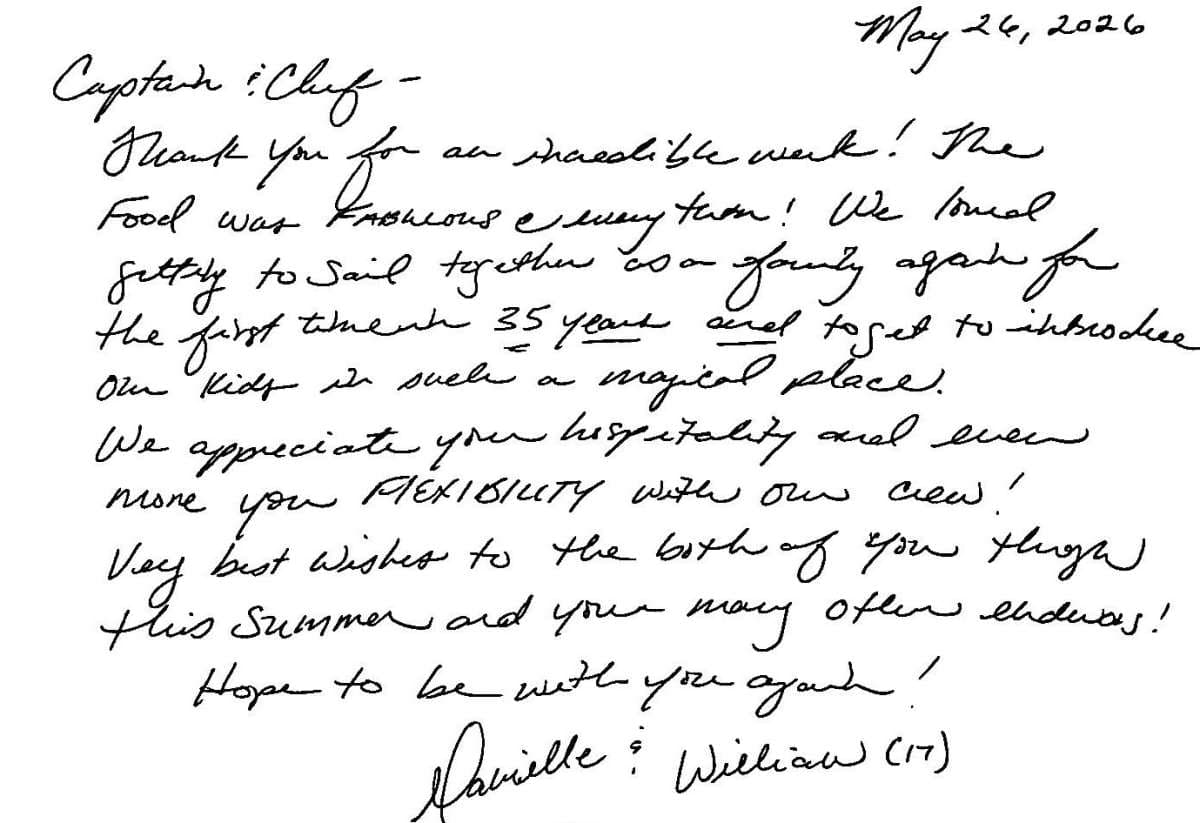 May 26, 2026
Captain & Chef -
Thank you for an incredible week! The
Food was FABULOUS @ every turn! We loved
getting to sail together as a family again for
the first time in 35 years and to get to introduce
our kids in such a magical place.
We appreciate your hospitality and even
more your FLEXIBILITY with our crew!
Very best wishes to the both of you through
this summer and your many other endeavors!
Hope to be with you again!
Danielle & William (17)